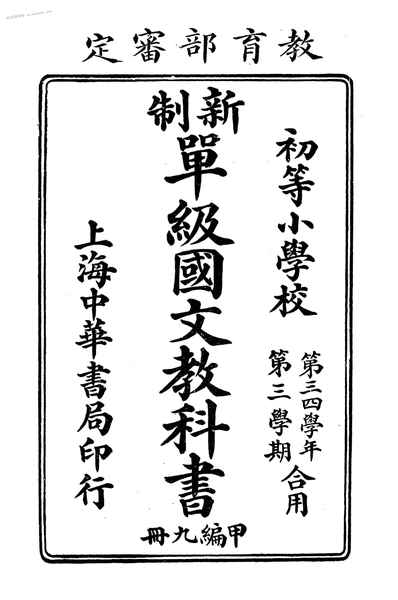 教育部審定
初等小學校
第三四學年
第三學期
合用
新制
單級國文教科書
甲編九冊
上海中華書局印行